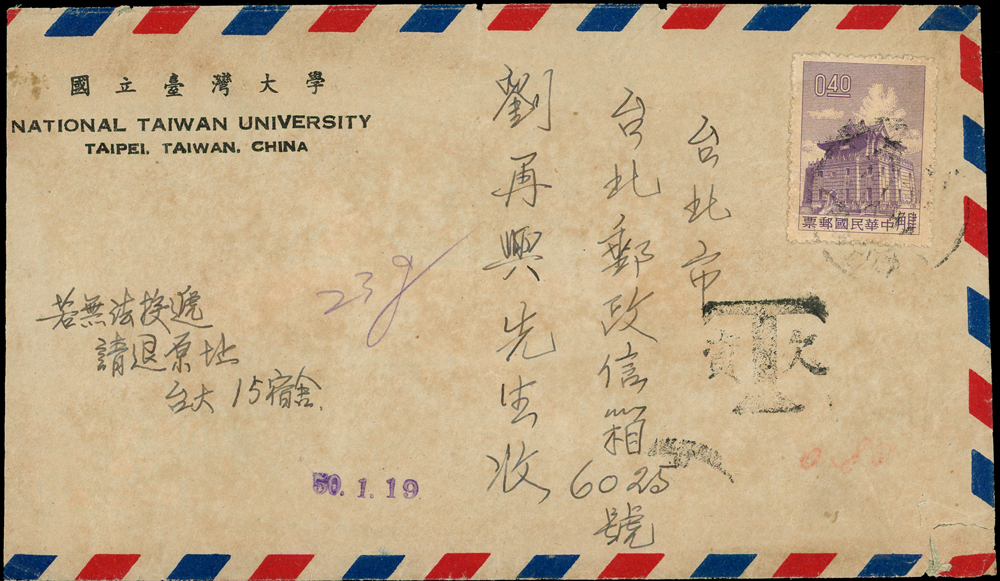 國立臺灣大學
NATIONAL TAIWAN UNIVERSITY
TAIPEI, TAIWAN, CHINA
0.40
票郵國民華中
台北市
台北郵政信箱
6025
號
劉再興先生收
若無法投遞
請退原址
台大15宿舍
23g
50.1.19
T
資欠